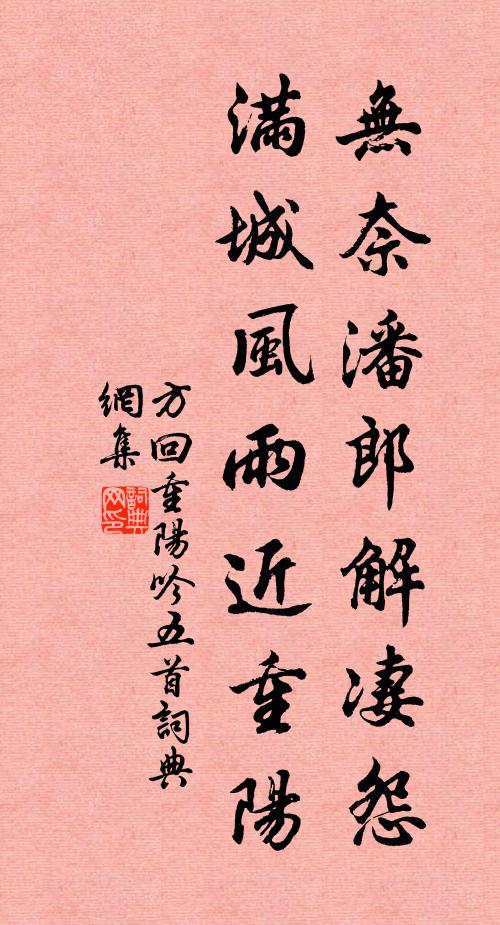 無奈潘郎解淒怨
滿城風雨近重陽
方回重陽吟五首詞典
網集
詞典
网印